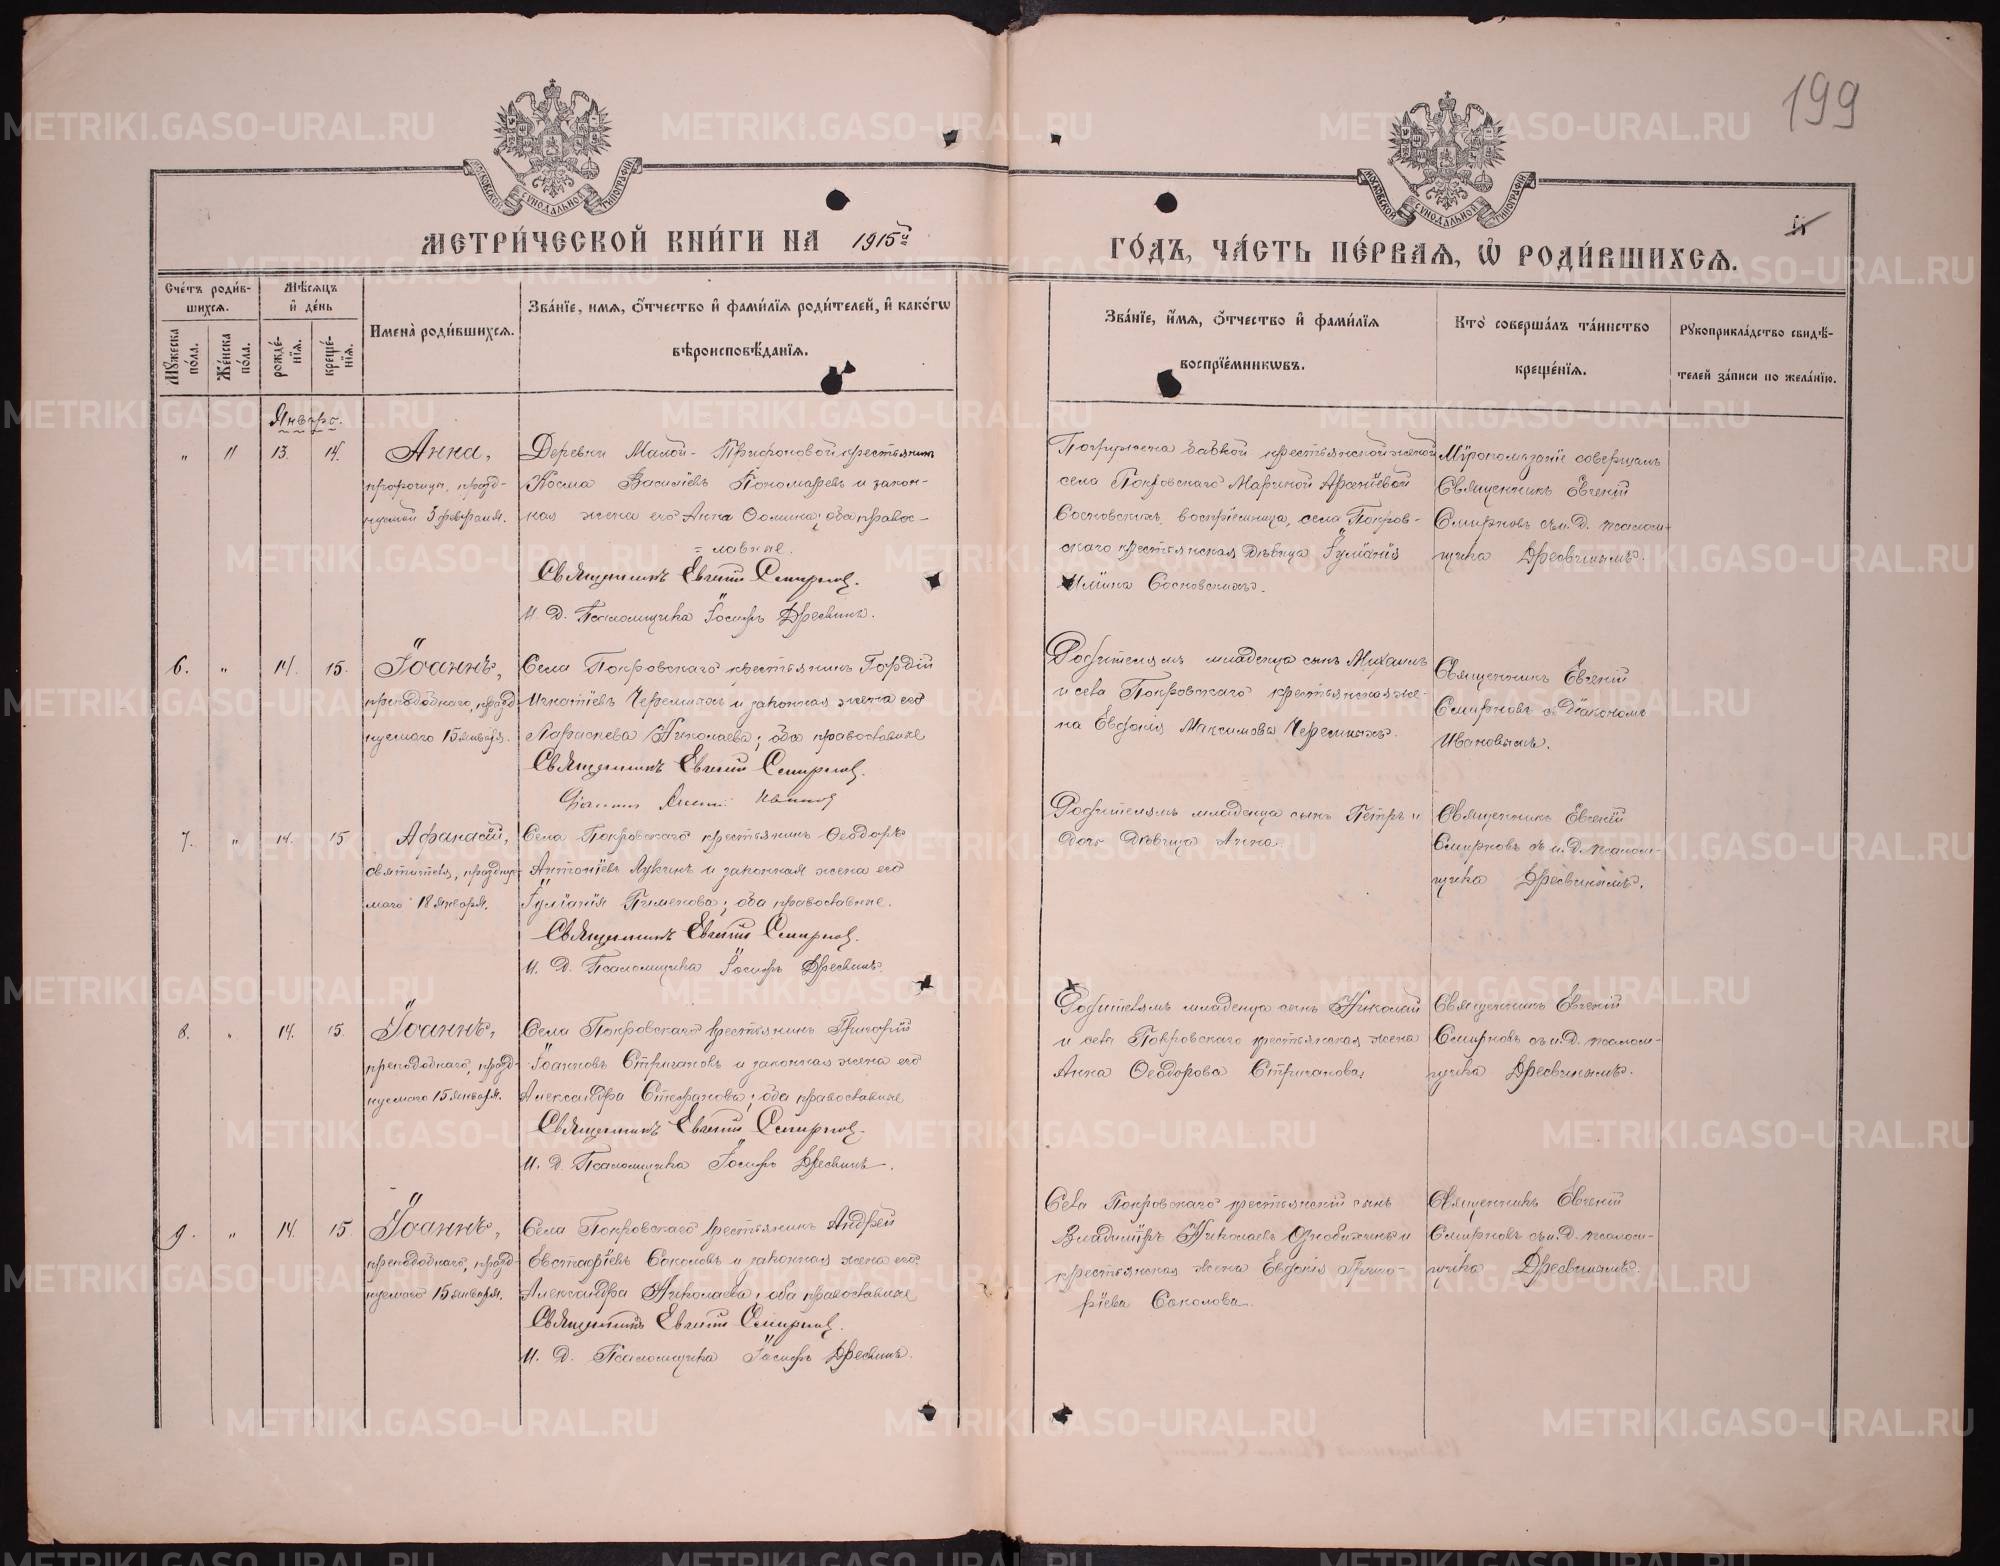 199
МОСКОВСКОЙ СѴНОДАЛЬНОЙ ТИПОГРАФІИ
МОСКОВСКОЙ СѴНОДАЛЬНОЙ ТИПОГРАФІИ
МЕТРИ́ЧЕСКОЙ КНИ́ГИ НА 1915й
ГО́ДЪ, ЧА́СТЬ ПЕ́РВАЯ, Ѡ РОДИ́ВШИХСЯ.
Сче́тъ роди́в-
шихся.
Мѣ́сяцъ
и҆ де́нь
Имена̀ роди́вшихся.
Зва́нїе, имя, о҆́тчество и҆ фами́лїя роди́телей, и҆ како́гѡ
вѣроисповѣ́данїя.
Мꙋжеска по́ла.
Же́нска по́ла.
рожде́нїя.
креще́нїя.
Зва́нїе, и҆́мя, о҆́тчество и҆ фами́лїя
воспрїе́мникѡвъ.
Кто̀ соверша́лъ та́инство
креще́нїя.
Рꙋкоприкла́дство свидѣ́-
телей за́писи по жела́нїю.
Январь.
„ 11 13. 14. Анна,
пророчицы, празд-
нуемой 3 февраля.
Деревни Малой-Трифоновой крестьянинъ
Косма Василіевъ Пономаревъ и закон-
ная жена его Анна Ѳомина; оба правос-
= лавные.
Священникъ Евгеній Смирновъ.
И. Д. Псаломщика Іосифъ Дресвинъ.
Погружена бабкой крестьянской женой
села Покровскаго Мариной Арсеніевой
Сосновскихъ, воспріемница, села Покров-
скаго крестьянская дѣвица Іуліанія
Ильина Сосновскихъ.
Мѵропомазаніе совершалъ
Священникъ Евгеній
Смирновъ съ и. Д. псалом-
щика Дресвинымъ.
6. „ 14. 15. Іоаннъ,
преподобнаго, празд-
нуемаго 15 января.
Села Покровскаго крестьянинъ Гордій
Игнатіевъ Черемныхъ и законная жена его
Параскева Николаева; оба православные
Священникъ Евгеній Смирновъ.
Діаконъ Ивановъ
Родителямъ младенца сынъ Михаилъ
и села Покровскаго крестьянская же-
на Евдокія Максимова Черемныхъ.
Священникъ Евгеній
Смирновъ съ Діакономъ
Ивановымъ.
7. „ 14. 15 Афанасій,
святителя, праздну-
маго 18 января.
Села Покровскаго крестьянинъ Ѳеодоръ
Антоніевъ Лукинъ и законная жена его
Іуліанія Пименова; оба православные.
Священникъ Евгеній Смирновъ.
И. Д. Псаломщика Іосифъ Дресвинъ.
Родителямъ младенца сынъ Петръ и
дочь дѣвица Анна.
Священникъ Евгеній
Смирновъ съ и. Д. псалом-
щика Дресвинымъ.
8. „ 14. 15. Іоаннъ,
преподобнаго, празд-
нуемаго 15 января.
Села Покровскаго крестьянинъ Григорій
Іоанновъ Стригановъ и законная жена его
Александра Стефанова; оба православные
Священникъ Евгеній Смирновъ.
И. Д. Псаломщика Іосифъ Дресвинъ.
Родителямъ младенца сынъ Николай
и села Покровскаго крестьянская жена
Анна Ѳеодорова Стриганова.
Священникъ Евгеній
Смирновъ съ и. Д. псалом-
щика Дресвинымъ.
9. „ 14. 15 Іоаннъ,
преподобнаго, празд-
нуемаго 15 января.
Села Покровскаго крестьянинъ Андрей
Евстафіевъ Соколовъ и законная жена его
Александра Николаева; оба православные
Священникъ Евгеній Смирновъ.
И. Д. Псаломщика Іосифъ Дресвинъ.
Села Покровскаго крестьянскій сынъ
Владиміръ Николаевъ Ознобихинъ и
крестьянская жена Евдокія Григо-
ріева Соколова.
Священникъ Евгеній
Смирновъ съ и. Д. псалом-
щика Дресвинымъ.
METRIKI.GASO-URAL.RU